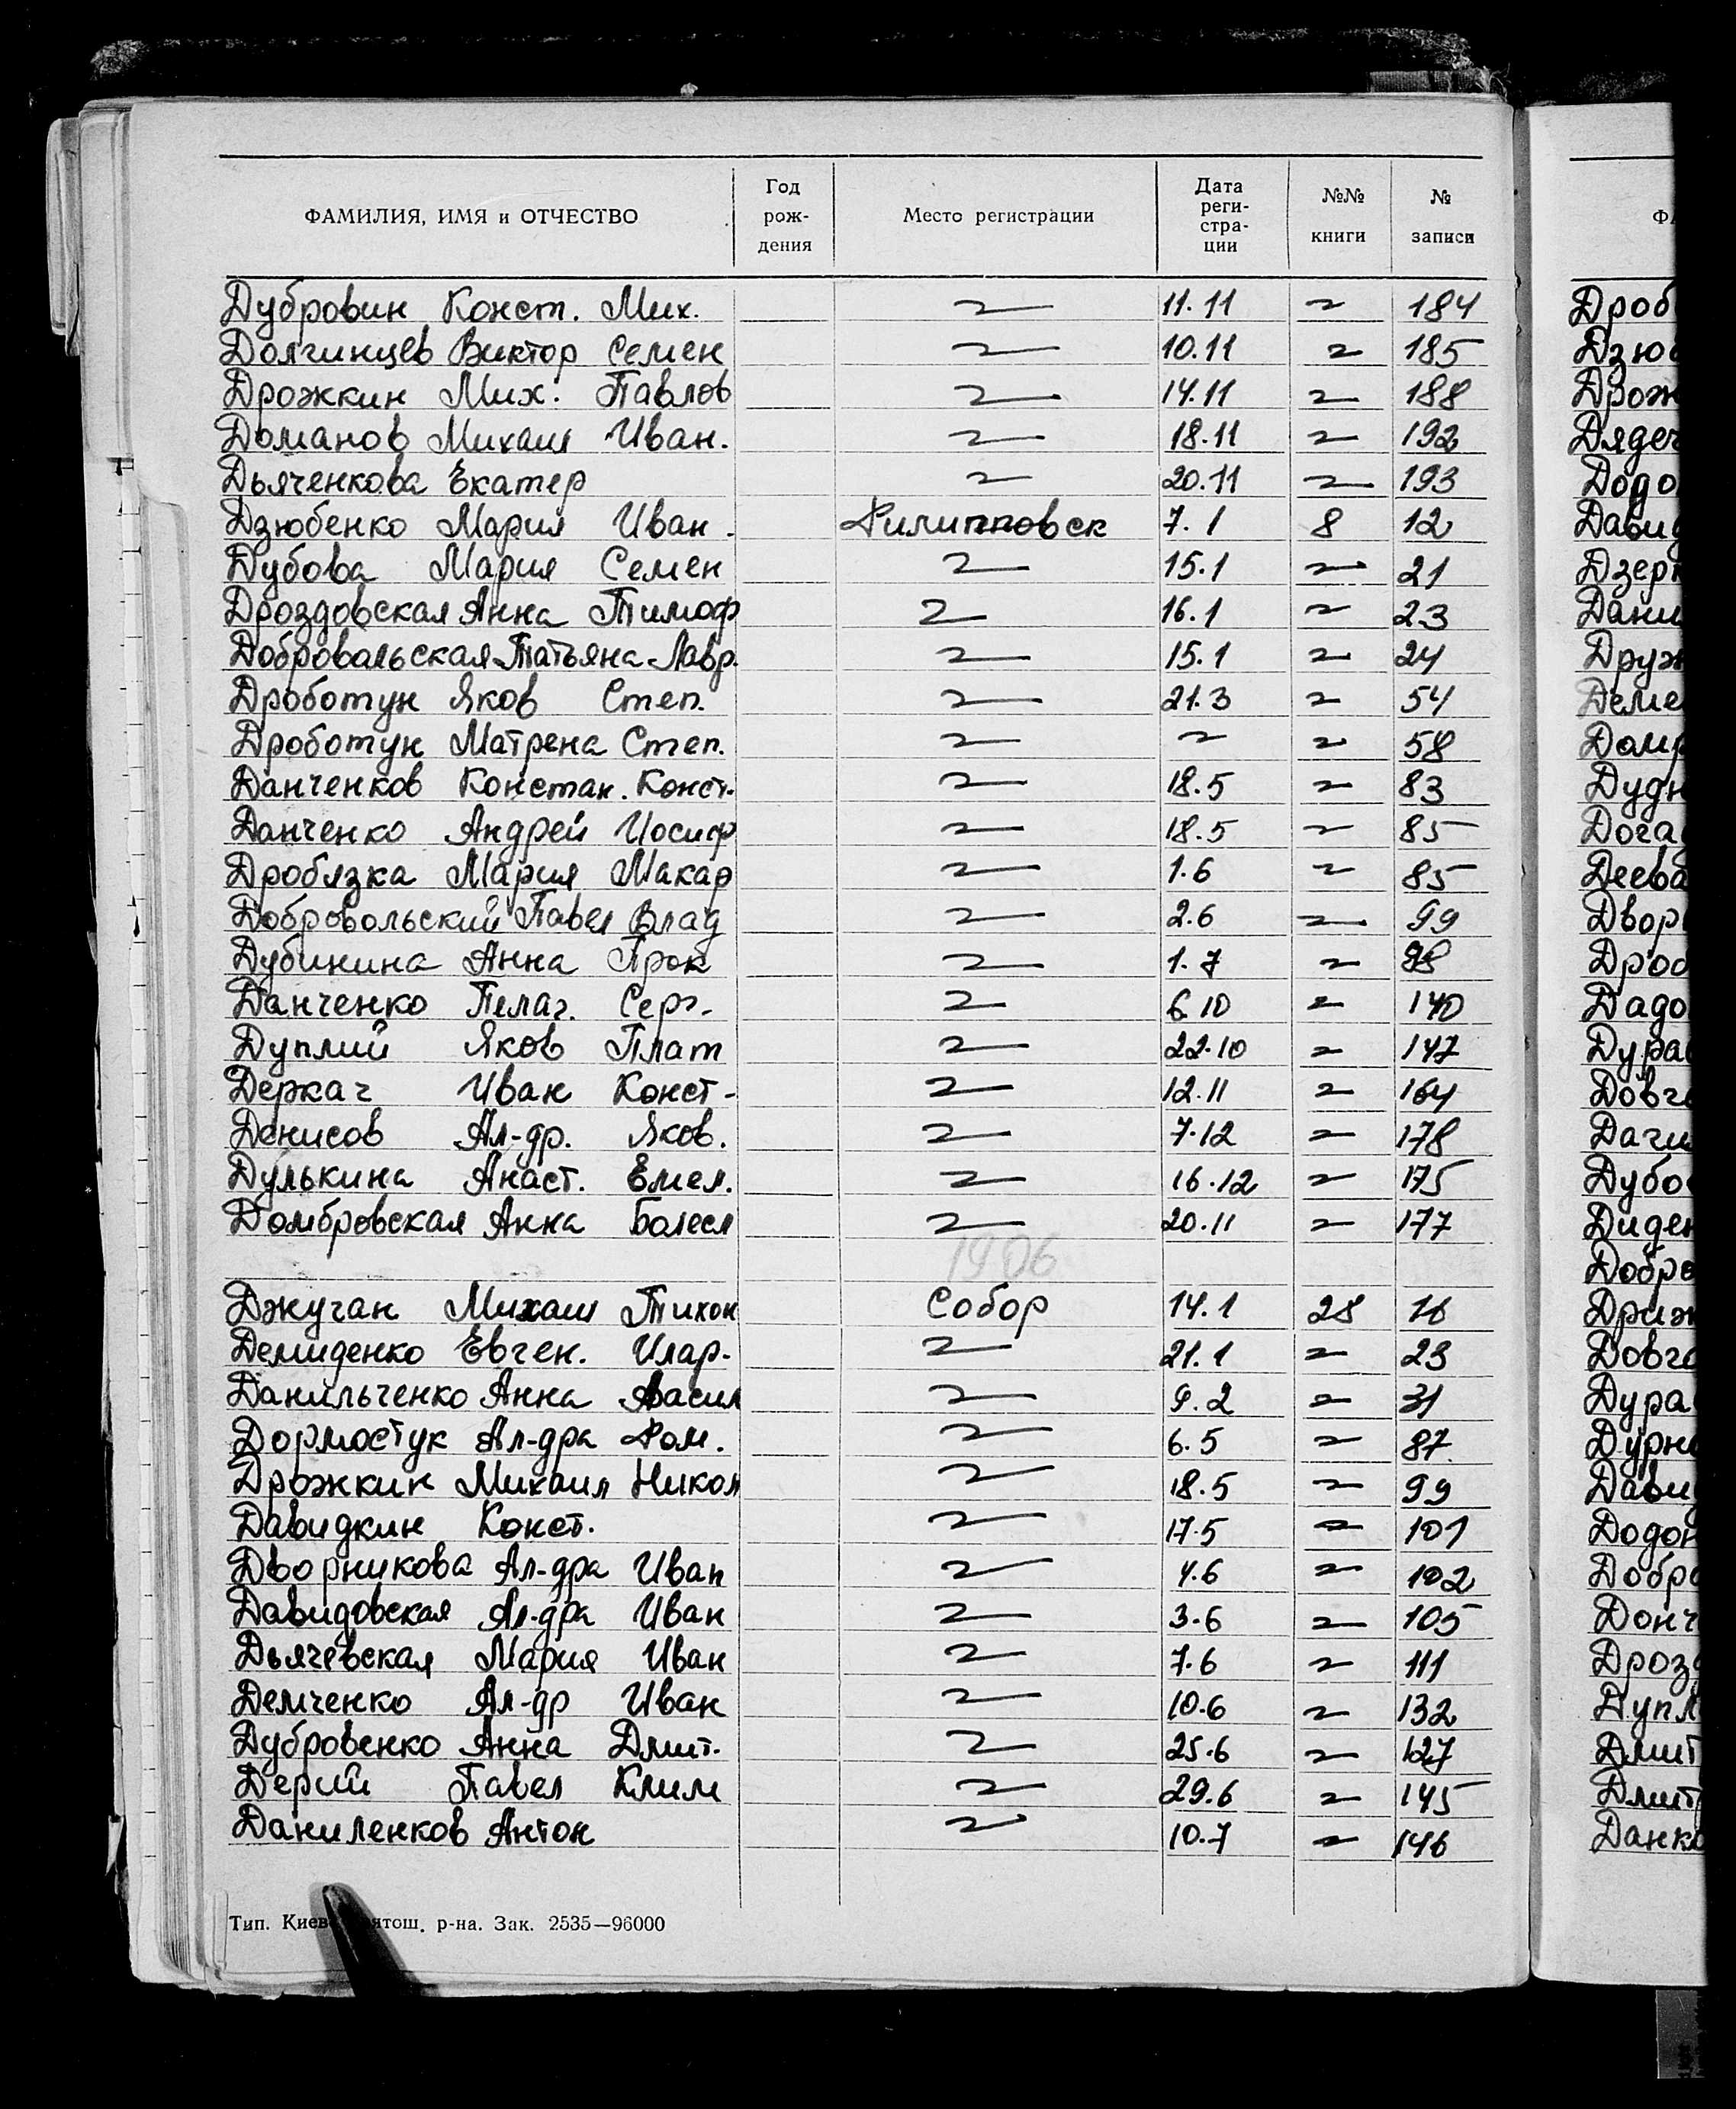 ФАМИЛИЯ, ИМЯ и ОТЧЕСТВО Год рож- дения Место регистрации Дата реги- стра- ции №№ книги № записи
Дубровин Конст. Мих. 11.11 184
Долгинцев Виктор Семен 10.11 185
Дрожкин Мих. Павлов 14.11 188
Доманов Михаил Иван. 18.11 192
Дьяченкова Екатер 20.11 193
Дзюбенко Мария Иван. Филипповск 7.1 8 12
Дубова Мария Семен 15.1 21
Дроздовская Анна Тимоф 16.1 23
Добровальская Татьяна Лавр. 15.1 24
Дроботун Яков Степ. 21.3 54
Дроботун Матрена Степ. 58
Данченков Констан. Конст. 18.5 83
Данченко Андрей Иосиф 18.5 85
Дробязка Мария Макар 1.6 85
Добровольский Павел Влад 2.6 99
Дубинина Анна Прок 1.7
Данченко Пелаг. Серг. 6.10 140
Дуплий Яков Плат 22.10 147
Держач Иван Конст- 12.11 164
Денисов Ал-др. Яков. 7.12 178
Дулькина Анаст. Емел. 16.12 175
Домбровская Анна Болесл 20.11 177
1906
Джуган Михаил Тихон Собор 14.1 28 16
Демиденко Евген. Илар. 21.1 23
Данильченко Анна Васил 9.2 31
Дормостук Ал-дра Фом. 6.5 87
Дрожкин Михаил Никол 18.5 99
Давидкин Конст. 17.5 101
Дворникова Ал-дра Иван 4.6 102
Давидовская Ал-дра Иван 3.6 105
Дьячевская Мария Иван 7.6 111
Демченко Ал-др Иван 10.6 132
Дубровенко Анна Дмит. 25.6 127
Дерий Павел Клим 29.6 145
Даниленков Антон 10.7 146
Тип. р-на. Зак. 2535—96000